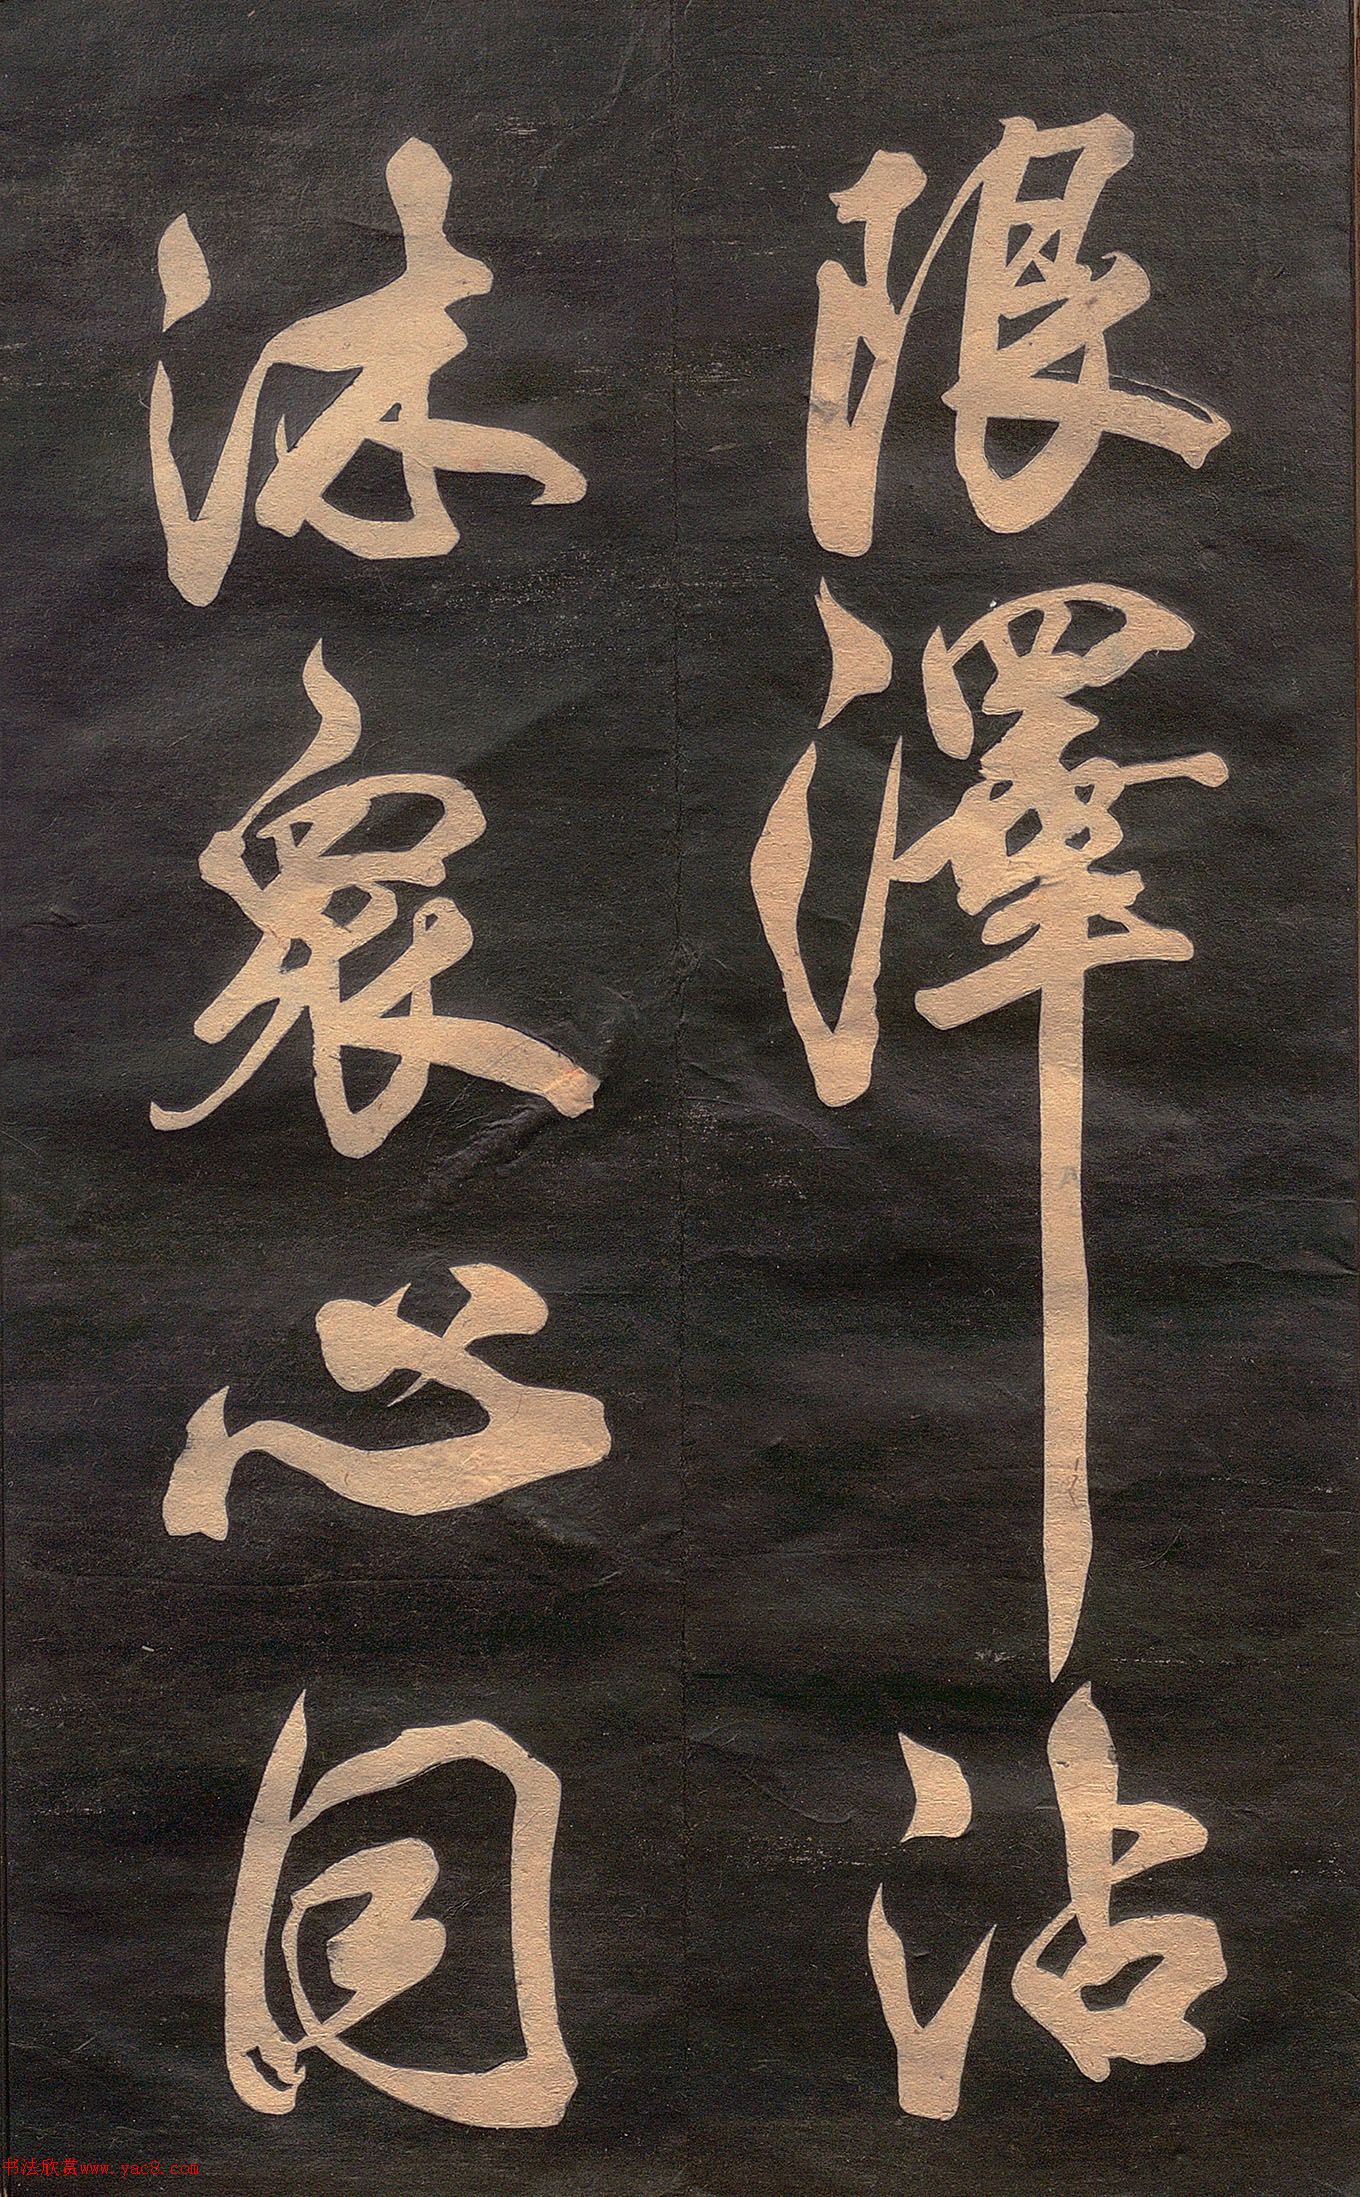 限澤沾
沐衆心同
书法欣赏www.yac8.com